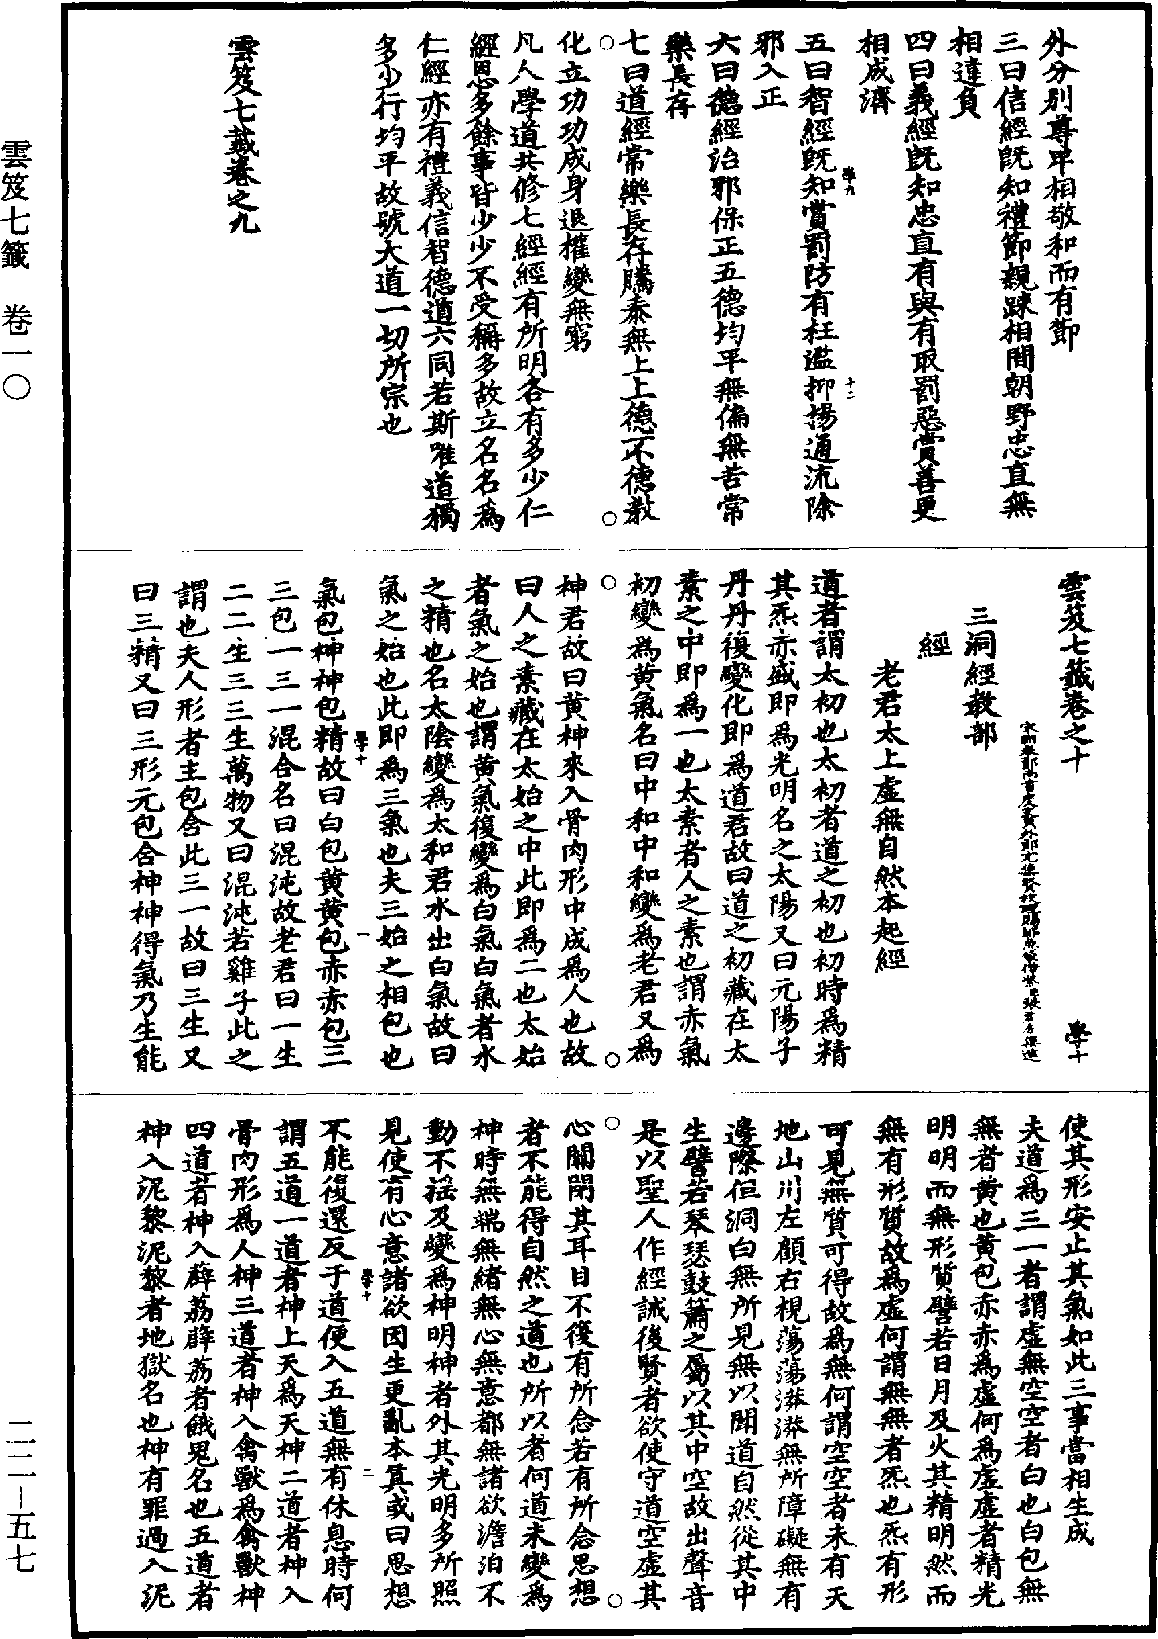 外分別尊卑相敬和而有節
三曰信經既知禮節親踈相間朝野忠直無
相違負
四曰義經既知忠直有與有取罰惡賞善更
相成濟
五曰智經既知賞罰防有枉濫抑揚通流除
邪入正
六曰德經治邪保正五德均平無偏無苦常
樂長存
七曰道經常樂長存騰泰無上上德不德教
化立功功成身退權變無窮
凡人學道共修七經經有所明各有多少仁
經恩多餘事皆少少不受稱多故立名名爲
仁經亦有禮義信智德道六同若斯唯道獨
多少行均平故號大道一切所宗也
雲笈七籤卷之九
學九
十二
雲笈七籤卷之十
學十
三洞經教部
經
老君太上虛無自然本起經
道者謂太初也太初者道之初也初時爲精
其炁赤盛即爲光明名之太陽又曰元陽子
丹丹復變化即爲道君故曰道之初藏在太
素之中即爲一也太素者人之素也謂赤氣
初變爲黃氣名曰中和中和變爲老君又爲
神君故曰黃神來入骨肉形中成爲人也故
曰人之素藏在太始之中此即爲二也太始
者氣之始也謂黃氣復變爲白氣白氣者水
之精也名太陰變爲太和君水出白氣故曰
氣之始也此即爲三氣也夫三始之相包也
學十
一
氣包神神包精故曰白包黃黃包赤赤包三
三包一三一混合名曰混沌故老君曰一生
二二生三三生萬物又曰混沌若雞子此之
謂也夫人形者主包含此三一故曰三生又
曰三精又曰三形元包含神神得氣乃生能
使其形安止其氣如此三事當相生成
夫道爲三一者謂虛無空空者白也白包無
無者黃也黃包赤赤爲虛何爲虛虛者精光
明明而無形質譬若日月及火其精明然而
無有形質故爲虛何謂無無者炁也炁有形
可見無質可得故爲無何謂空空者未有天
地山川左顧右視蕩蕩漭漭無所障礙無有
邊際但洞白無所見無以聞道自然從其中
生譬若琴瑟鼓簫之屬以其中空故出聲音
是以聖人作經誡後賢者欲使守道空虛其
心關閉其耳目不復有所念若有所念思想
者不能得自然之道也所以者何道未變爲
神時無端無緒無心無意都無諸欲澹泊不
動不搖及變爲神明神者外其光明多所照
見使有心意諸欲因生更亂本真或曰思想
學十
二
不能復還反于道便入五道無有休息時何
謂五道一道者神上天爲天神二道者神入
骨肉形爲人神三道者神入禽獸爲禽獸神
四道者神入薜荔薜荔者餓鬼名也五道者
神入泥黎泥黎者地獄名也神有罪過入泥
雲笈七籤　卷一〇
二二－五七